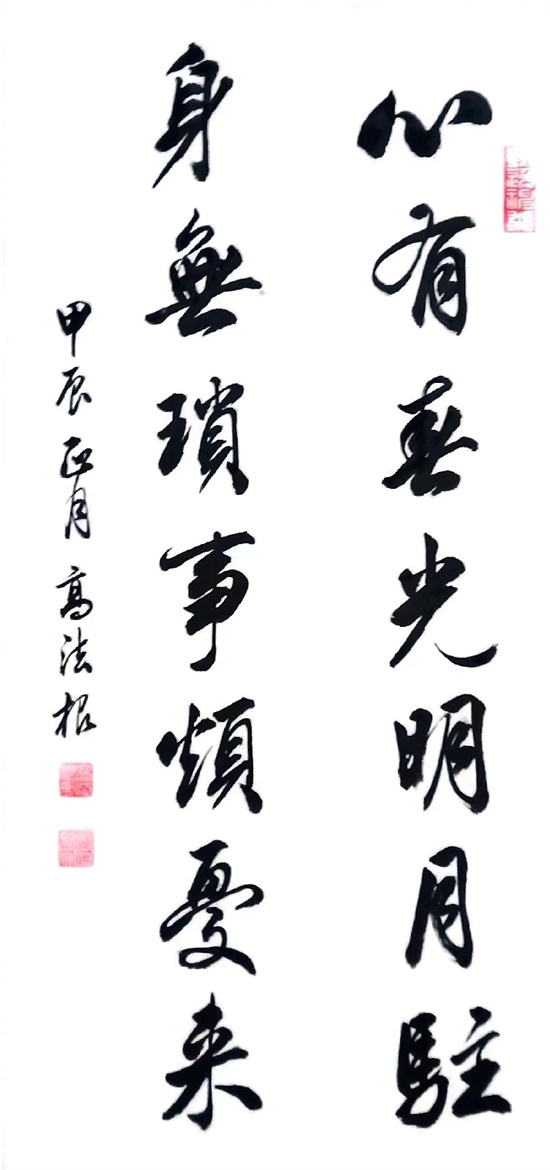 心有春光明月駐
身無瑣事煩憂来
甲辰正月高法根